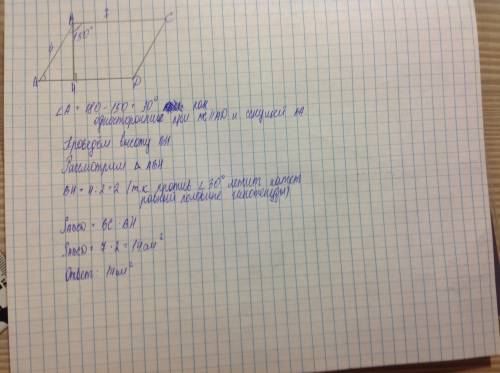 B 7 C
150°
4
A H D
∠A = 180 - 150 = 30° как
односторонние при BC||AD и секущей BA
Проведём высоту BH
Рассмотрим △ ABH
BH = 4 : 2 = 2 (т.к. против ∠30° лежит катет
равный половине гипотенузы)
SABCD = BC · BH
SABCD = 7 · 2 = 14 см²
Ответ: 14 см²